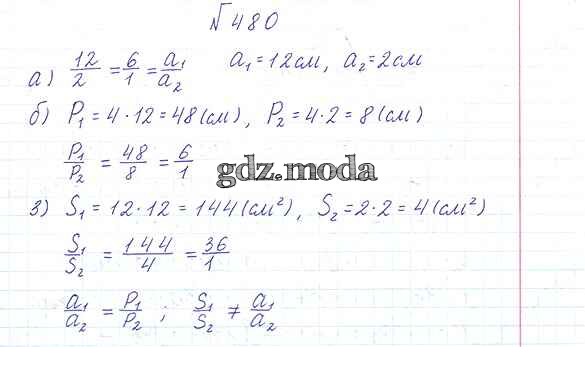 №480
а) 12/2 = 6/1 = a₁/a₂ a₁ = 12 см, a₂ = 2 см
б) P₁ = 4 · 12 = 48 (см), P₂ = 4 · 2 = 8 (см)
P₁/P₂ = 48/8 = 6/1
gdz.moda
з) S₁ = 12 · 12 = 144 (см²), S₂ = 2 · 2 = 4 (см²)
S₁/S₂ = 144/4 = 36/1
a₁/a₂ = P₁/P₂ ; S₁/S₂ ≠ a₁/a₂